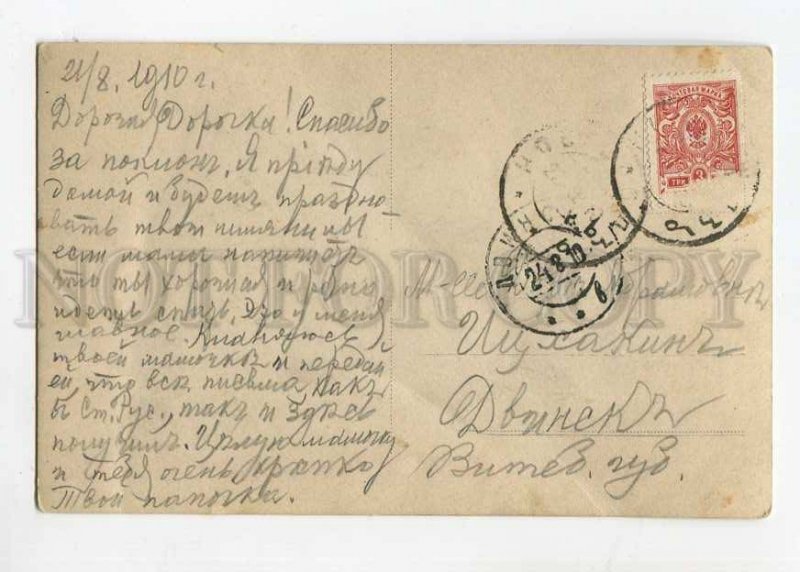 21/8. 1910 г.
Дорогая Дорочка! Спасибо
за поклонъ. Я пріѣду
домой и будемъ праздно
вать твои имянины
если мама напишетъ
что ты хорошая и рано
идешь спать. Это у меня
главное. Кланяюсь
твоей мамочкѣ и передай
ей, что всѣ письма какъ
въ Ст. Рус., такъ и здѣсь
получилъ. Цѣлую мамочку
и тебя очень крѣпко
Твой папочка.
ПОЧТОВАЯ МАРКА
3
ТРИ
24 8 10
М-lle Абрамовнѣ
Ицхакинъ
Двинскъ
Витеб. губ.
NOT FOR COPY